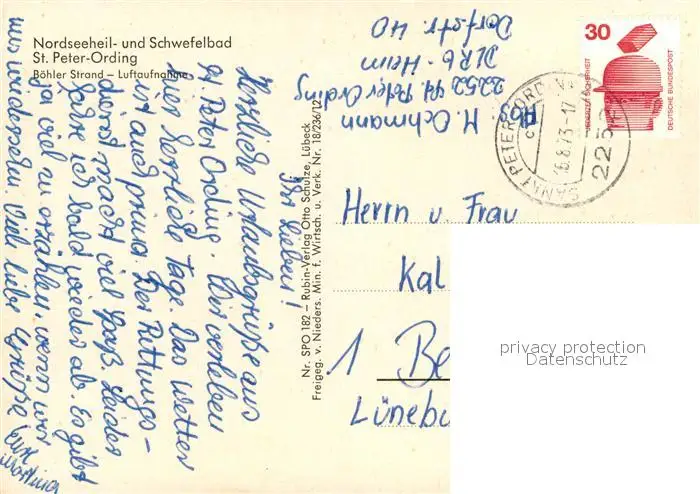 Nordseeheil- und Schwefelbad
St. Peter-Ording
Böhler Strand – Luftaufnahme
Ihr Lieben!
Herzliche Urlaubsgrüße aus
St. Peter Ording. Wir verleben
hier herrliche Tage. Das Wetter
ist auch prima. Der Rettungs-
dienst macht viel Spaß. Leider
fahre ich bald wieder ab. Es gibt
ja viel zu erzählen, wenn wir
uns wiedersehn. Viel liebe Grüße
Martina
Nr. SPO 182 – Rubin-Verlag Otto Schulze, Lübeck
Freigeg. v. Nieders. Min. f. Wirtsch. u. Verk. Nr. 18/236/12
Abs.
M. Ochmann
2252 St. Peter Ording
DLRG-Heim
Dorfstr. 40
30
JEDERZEIT SICHERHEIT
DEUTSCHE BUNDESPOST
SANKT PETER-ORDING
16.8.73-17
2252
Herrn u Frau
Kal
1 Be
Lünebu
privacy protection
Datenschutz